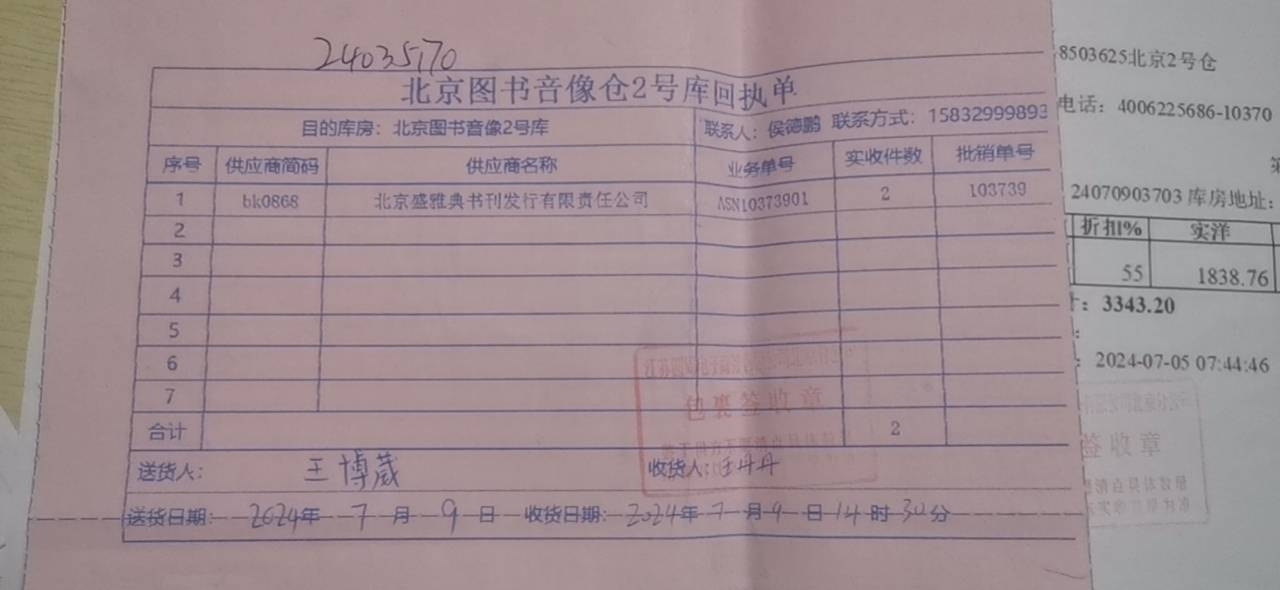 24035170
北京图书音像仓2号库回执单
目的库房：北京图书音像2号库 联系人：侯德鹏 联系方式：15832999893
序号 供应商简码 供应商名称 业务单号 实收件数 批销单号
1 bk0868 北京盛雅典书刊发行有限责任公司 ASN10373901 2 103739
2
3
4
5
6
7
合计 2
包裹签收章
送货人： 王博葳 收货人：
送货日期： 2024年 7 月 9 日 收货日期： 2024年 7 月 9 日 14 时 30分
8503625北京2号仓
电话：4006225686-10370
24070903703 库房地址：
折扣% 实洋
55 1838.76
3343.20
2024-07-05 07:44:46
签收章